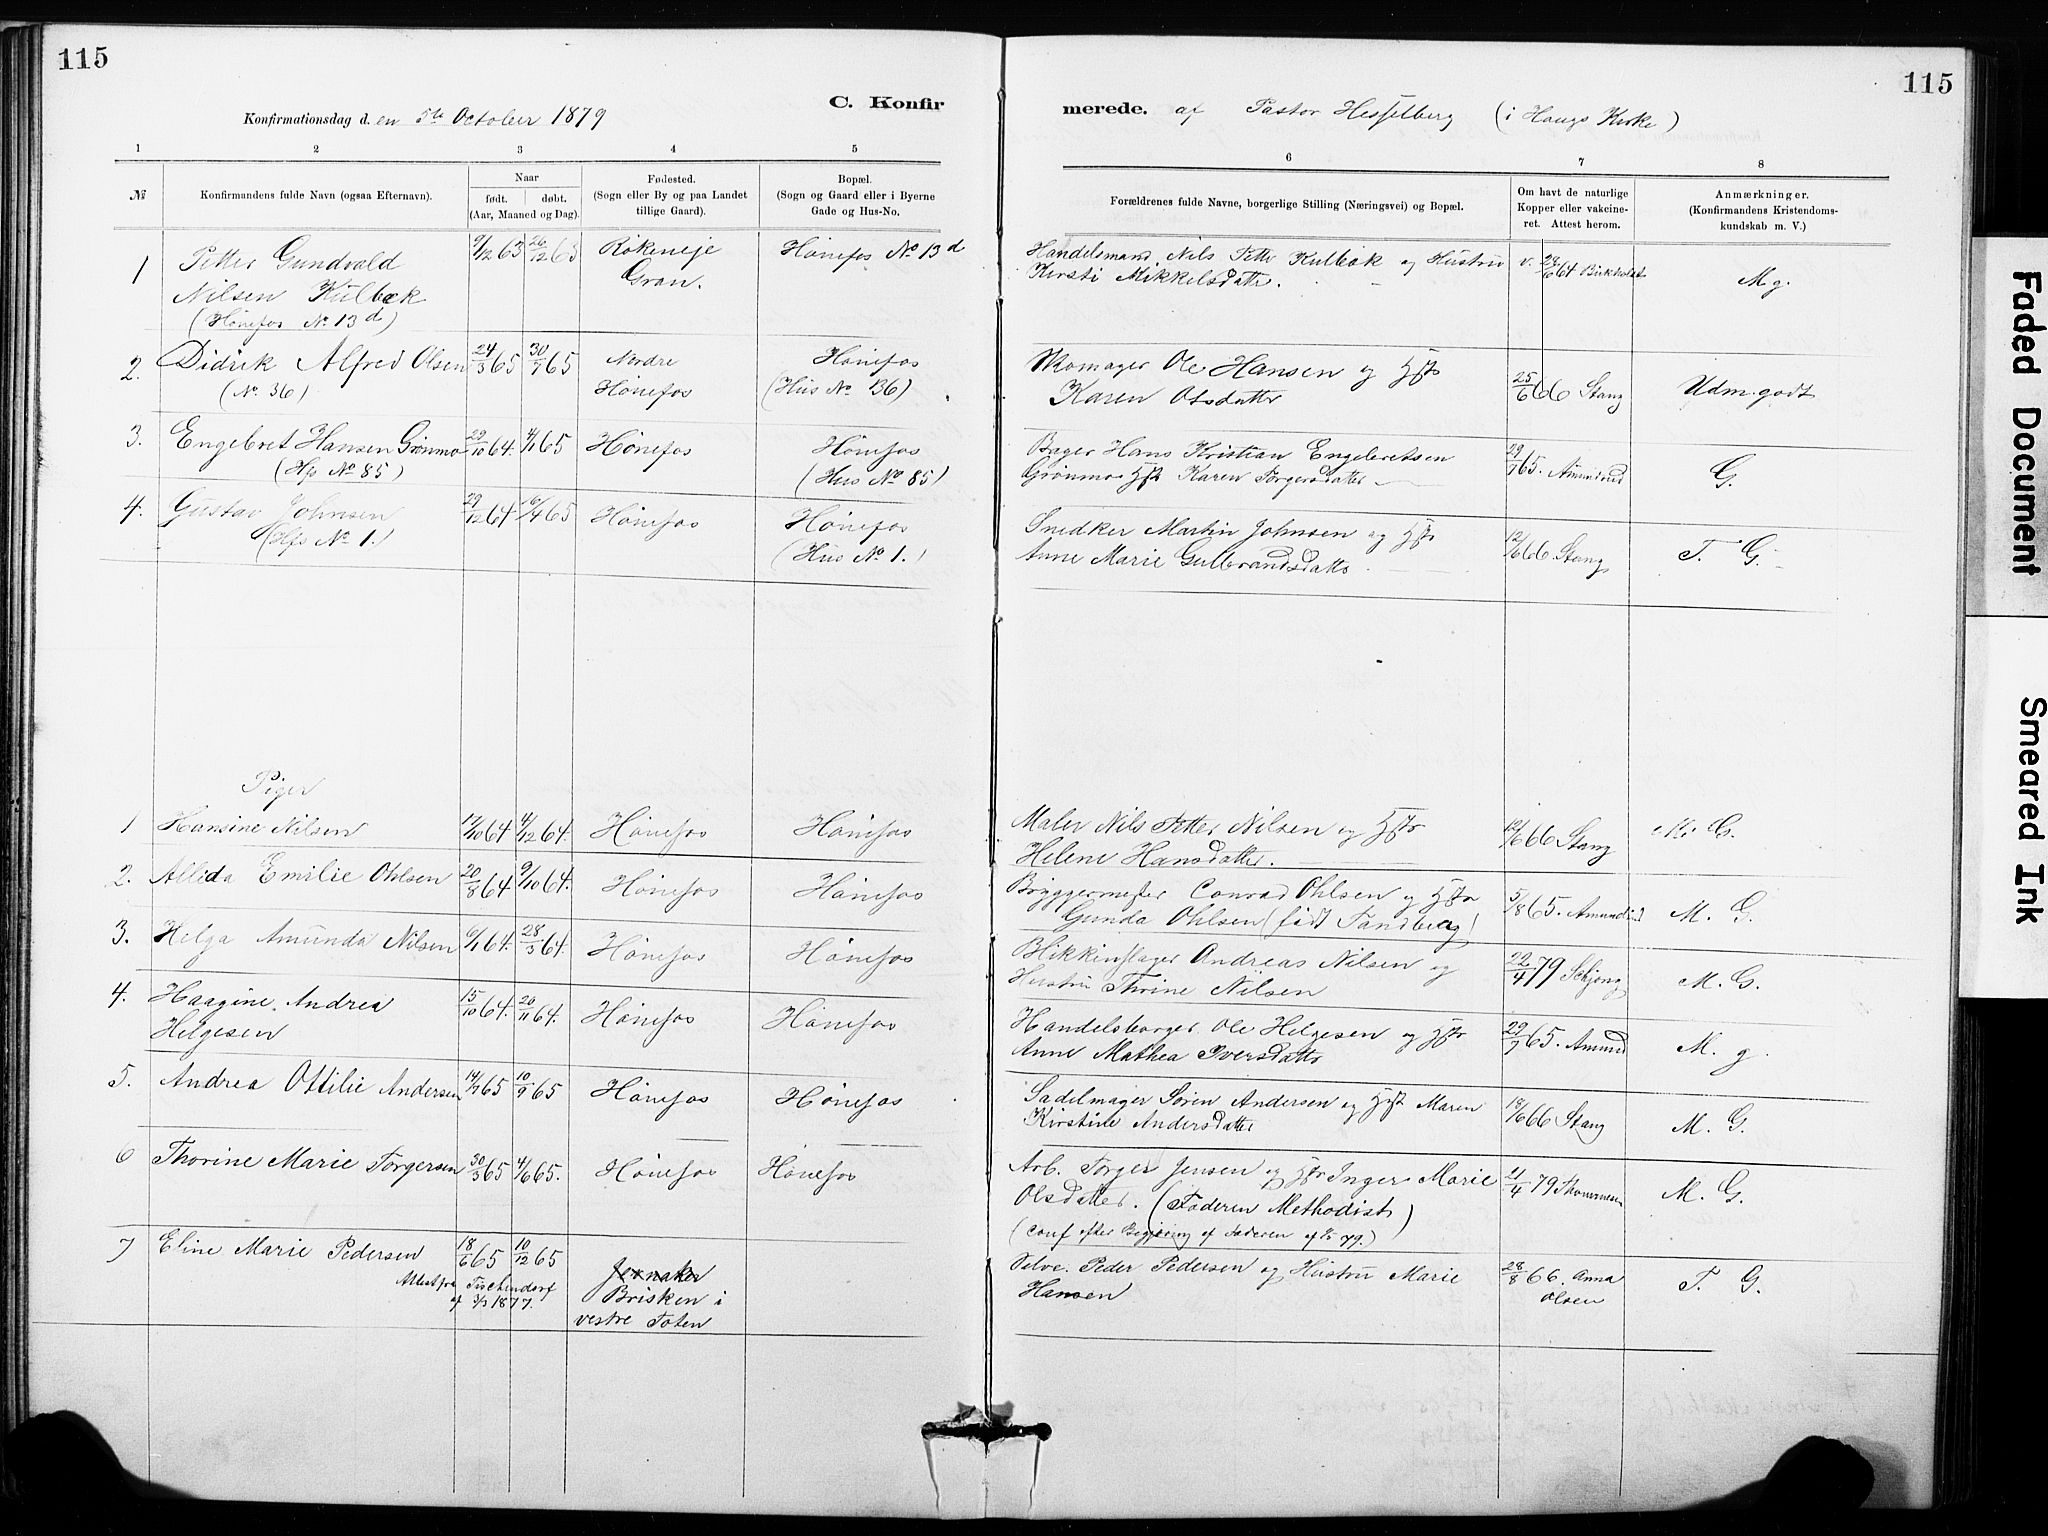 115
115
C. Konfir
merede. af Pastor Hesselberg (i Haugs Kirke)
Konfirmationsdag d. en 5te October 1879
1 2 3 4 5 6 7 8
№
Konfirmandens fulde Navn (ogsaa Efternavn).
Naar
født. døbt.
(Aar, Maaned og Dag).
Fødested.
(Sogn eller By og paa Landet
tillige Gaard).
Bopæl.
(Sogn og Gaard eller i Byerne
Gade og Hus-No.
Forældrenes fulde Navne, borgerlige Stilling (Næringsvei) og Bopæl.
Om havt de naturlige
Kopper eller vakcine-
ret. Attest herom.
Anmærkninger.
(Konfirmandens Kristendoms-
kundskab m. V.)
1 Petter Gundvald 9/12 63 26/12 63 Rökeneje Hønefos No 13 d Handelsmand Nils Petter Kulbæk og Hustru v. 24/10 64 Birkholdt M g.
Nilsen Kulbæk Gran. Kirsti Mikkelsdatr.
(Hønefos No 13 d)
2. Didrik Alfred Olsen 24/3 65 30/7 65 Nordre Hønefos Skomager Ole Hansen og Hstr 25/6 66 Stang Udm. godt
(No. 36) Hønefos (Hus No 136) Karen Olsdatter
3. Engebret Hansen Grönmo 29/10 64. 4/1 65 Hönefos Hönefos Bager Hans Kristian Engebretsen 29/7 65. Amundrud G.
(Hfs No 85) (Hus No 85) Grönmo Hst Karen Torgersdatter
4. Gustav Johnsen 29/12 64 16/4 65 Hönefos Hönefos Snedker Martin Johnsen og Hstr 12/6 66 Stang T. G.
(Hfs No 1.) (Hus No 1.) Anne Marie Gulbrandsdatter
Piger
1 Hansine Nilsen 17/10 64 4/12 64. Hønefos Hønefos Maler Nils Petter Nilsen og Hstr 12/6 66 Stang M. G.
Helene Hansdatter.
2. Allida Emilie Ohlsen 20/8 64 9/10 64. Hønefos Hønefos Bryggermester Conrad Ohlsen og Hstr 5/8 65. Amundrud M. G.
Gunda Ohlsen (født Sandberg)
3. Helga Amunda Nilsen 6/1 64. 28/3 64. Hønefos Hønefos Blikkinslager Andreas Nilsen og 22/4 79 Schjong M. G.
Hustru Thrine Nilsen
4. Haagine Andrea 15/10 64. 20/11 64. Hønefos Hønefos Handelsborger Ole Helgesen og Hstr 29/7 65. Amund M. g.
Helgesen Anne Mathea Iversdatter
5. Andrea Ottilie Andersen 14/7 65 10/9 65 Hønefos Hønefos Sadelmager Søren Andersen og Hst Maren 18/6 66 Stang M. G.
Kirstine Andersdatter
6 Thorine Marie Torgersen 30/3 65 4/6 65. Hönefos Hönefos Arb. Torger Jensen og Hstr Inger Marie 21/4 79 Thommesen M. G.
Olsdatter. (Faderen Methodist)
(conf efter Begjæring af Faderen 79.)
7 Eline Marie Pedersen 18/6 65 10/12 65 Jevnaker Selve. Peder Pedersen og Hustru Marie 28/8 66. Anna T. G.
Attest fra Tischendorf Brisken i Hansen Olsen
af 3/3 1877. vestre Toten
Faded Document
Smeared Ink